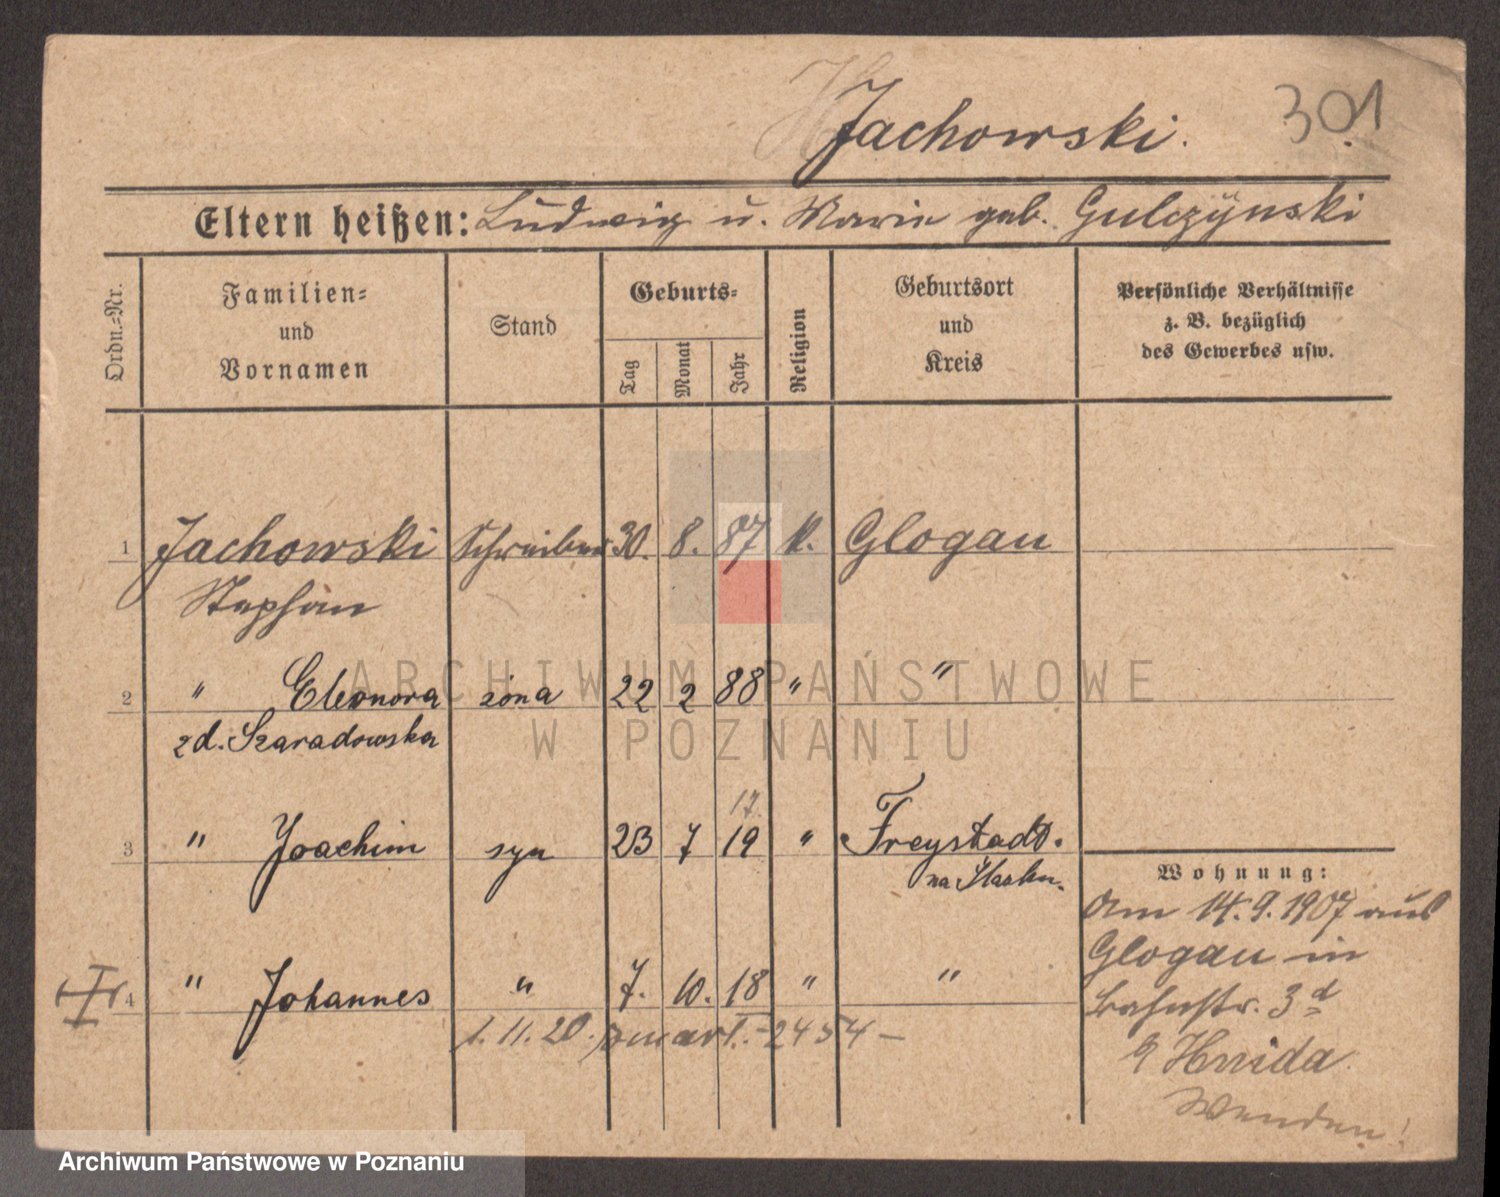 Jachowski.
301
Eltern heißen: Ludwig u. Marie geb. Gulczynski
Ordn.=Nr.
Familien=
und
Vornamen
Stand
Geburts=
Tag
Monat
Jahr
Religion
Geburtsort
und
Kreis
Persönliche Verhältnisse
z. B. bezüglich
des Gewerbes usw.
1 Jachowski Schreiber 30. 8. 87 k. Glogau
Stephan
2 " Eleonora żona 22 2 88 " "
zd. Szaradowska
17.
3 " Joachim syn 23 7 19 " Freystadt.
na Śląsku.
Wohnung:
Am 14.9.1907 aus
Glogau in
Bahnstr. 3d
4 " Johannes " 7. 10. 18 " "
1. 11. 20. zmarł - 2454 -
Hnida
Wenden!
ARCHIWUM PAŃSTWOWE
W POZNANIU
Archiwum Państwowe w Poznaniu